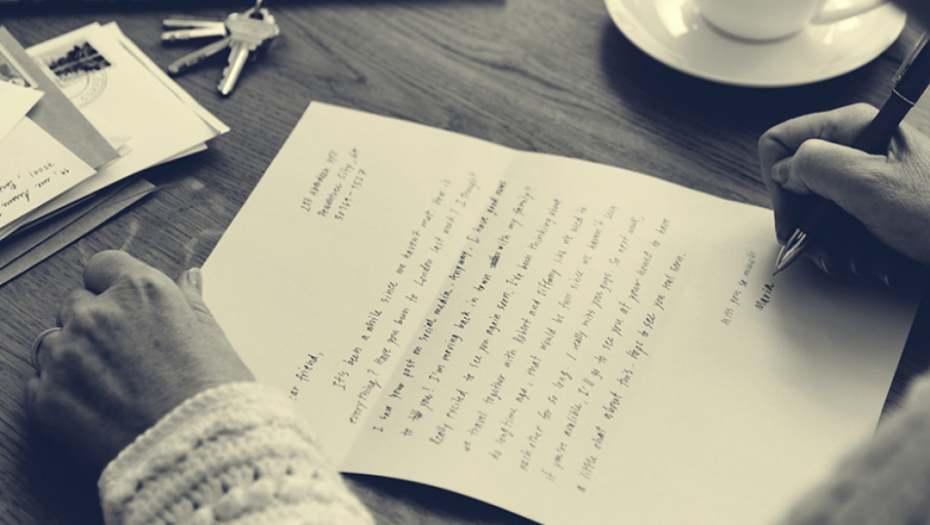 ar friend,
It's been a while since we haven't met. How is
everything? Have you been to London last week? I thought
I saw your post on social media. Anyway, I have good news
to you! I'm moving back in town with my family!
Really excited to see you again soon. I've been thinking about
we travel together with Robert and Tiffany like we used to
do long time ago, that would be fun since we haven't
each other for so long. I really miss you guys. So next week,
if you're available. I'll go to see you at your house? to have
a little chat about this. Hope to see you real soon.
you so much
Maria